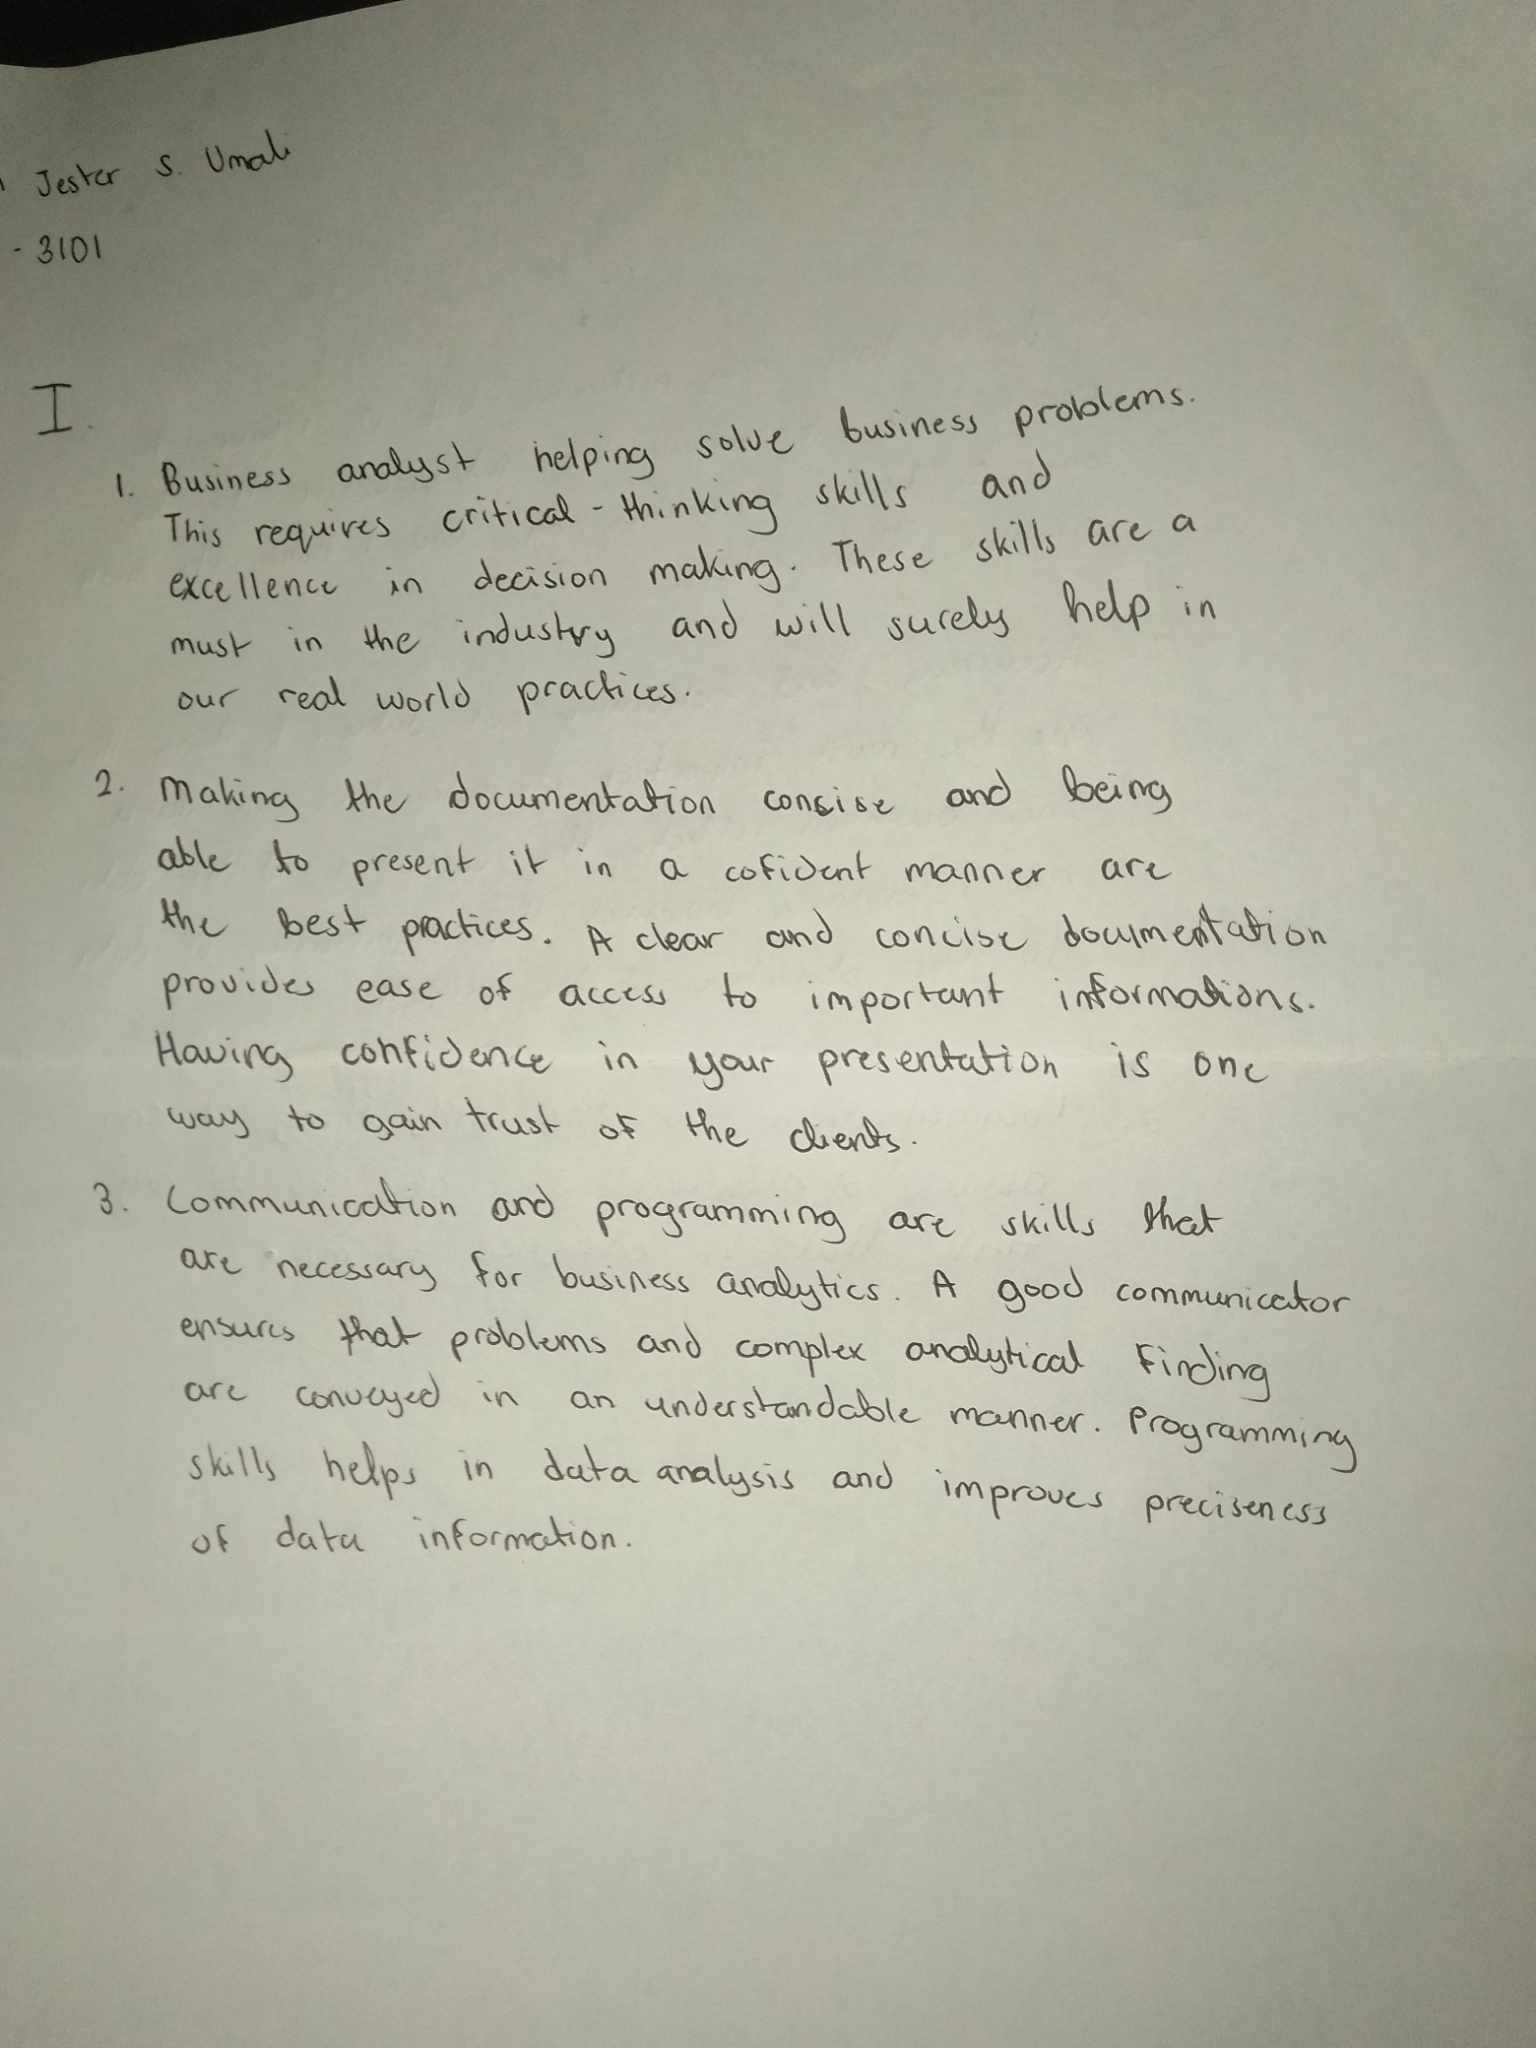 Jester S. Umali
- 3101
I.
1. Business analyst helping solve business problems.
This requires critical - thinking skills and
excellence in decision making. These skills are a
must in the industry and will surely help in
our real world practices.
2. Making the documentation concise and being
able to present it in a cofident manner are
the best practices. A clear and concise documentation
provides ease of access to important informations.
Having confidence in your presentation is one
way to gain trust of the clients.
3. Communication and programming are skills that
are necessary for business analytics. A good communicator
ensures that problems and complex analytical finding
are conveyed in an understandable manner. Programming
skills helps in data analysis and improves preciseness
of data information.